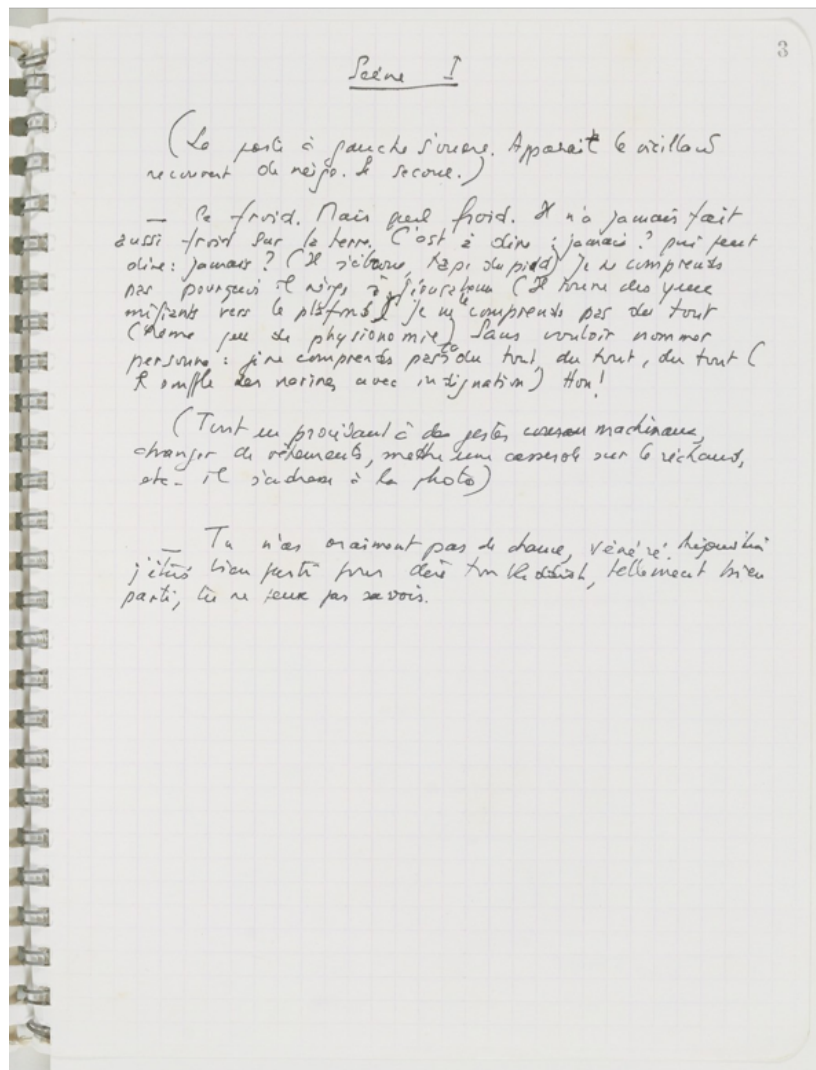 3
Scène I
(La porte à gauche s'ouvre. Apparait le vieillard
recouvert de neige. Se secoue.)
— Ce froid. Mais quel froid. Il n'a jamais fait
aussi froid sur la terre. C'est à dire : jamais ? qui peut
dire : jamais ? (Il s'ébroue, tape du pied) Je ne comprends
pas pourquoi il neige à Jérusalem (Il tourne des yeux
méfiants vers le plafond) je ne comprends pas du tout
(Même jeu de physionomie) Sans vouloir nommer
personne : je ne comprends pas du tout, du tout, du tout (
Il souffle des narines avec indignation) Hon !
(Tout en procédant à des gestes machinaux,
changer de vêtements, mettre une casserole sur le réchaud,
etc - il s'adresse à la photo)
— Tu n'as vraiment pas de chance, vénéré.
j'étais bien parti pour dire ton Kaddish, tellement bien
parti, tu ne peux pas savoir.